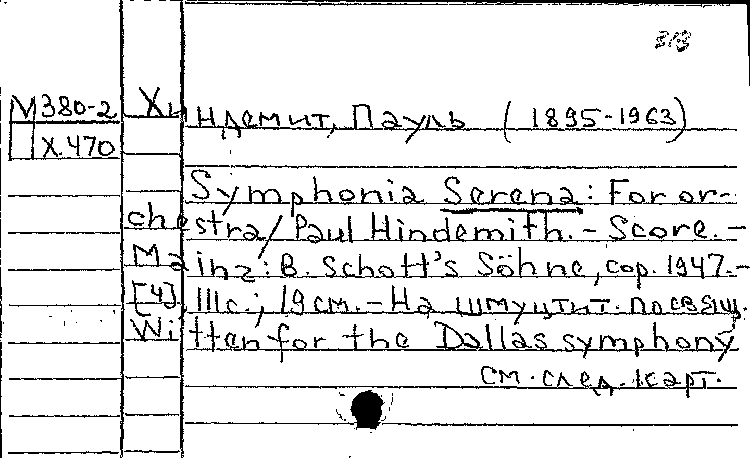 313
М380-2 Хиндемит, Пауль (1895-1963)
Х.470
Symphonia Serena: For or-
chestra/ Paul Hindemith. - Score. -
Mainz: B. Schott's Söhne, cop. 1947. -
[4], 111с.; 19 см. - На шмуцтит. посвящ.
Wittenfor the Dallas symphony
см. след. карт.